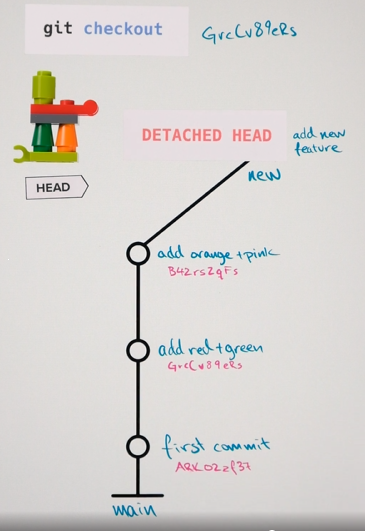 git checkout GrcCv89eRs
DETACHED HEAD
add new
feature
HEAD
new
add orange + pink
B42rs2qFs
add red + green
GrcCv89eRs
first commit
ARKO2zf37
main